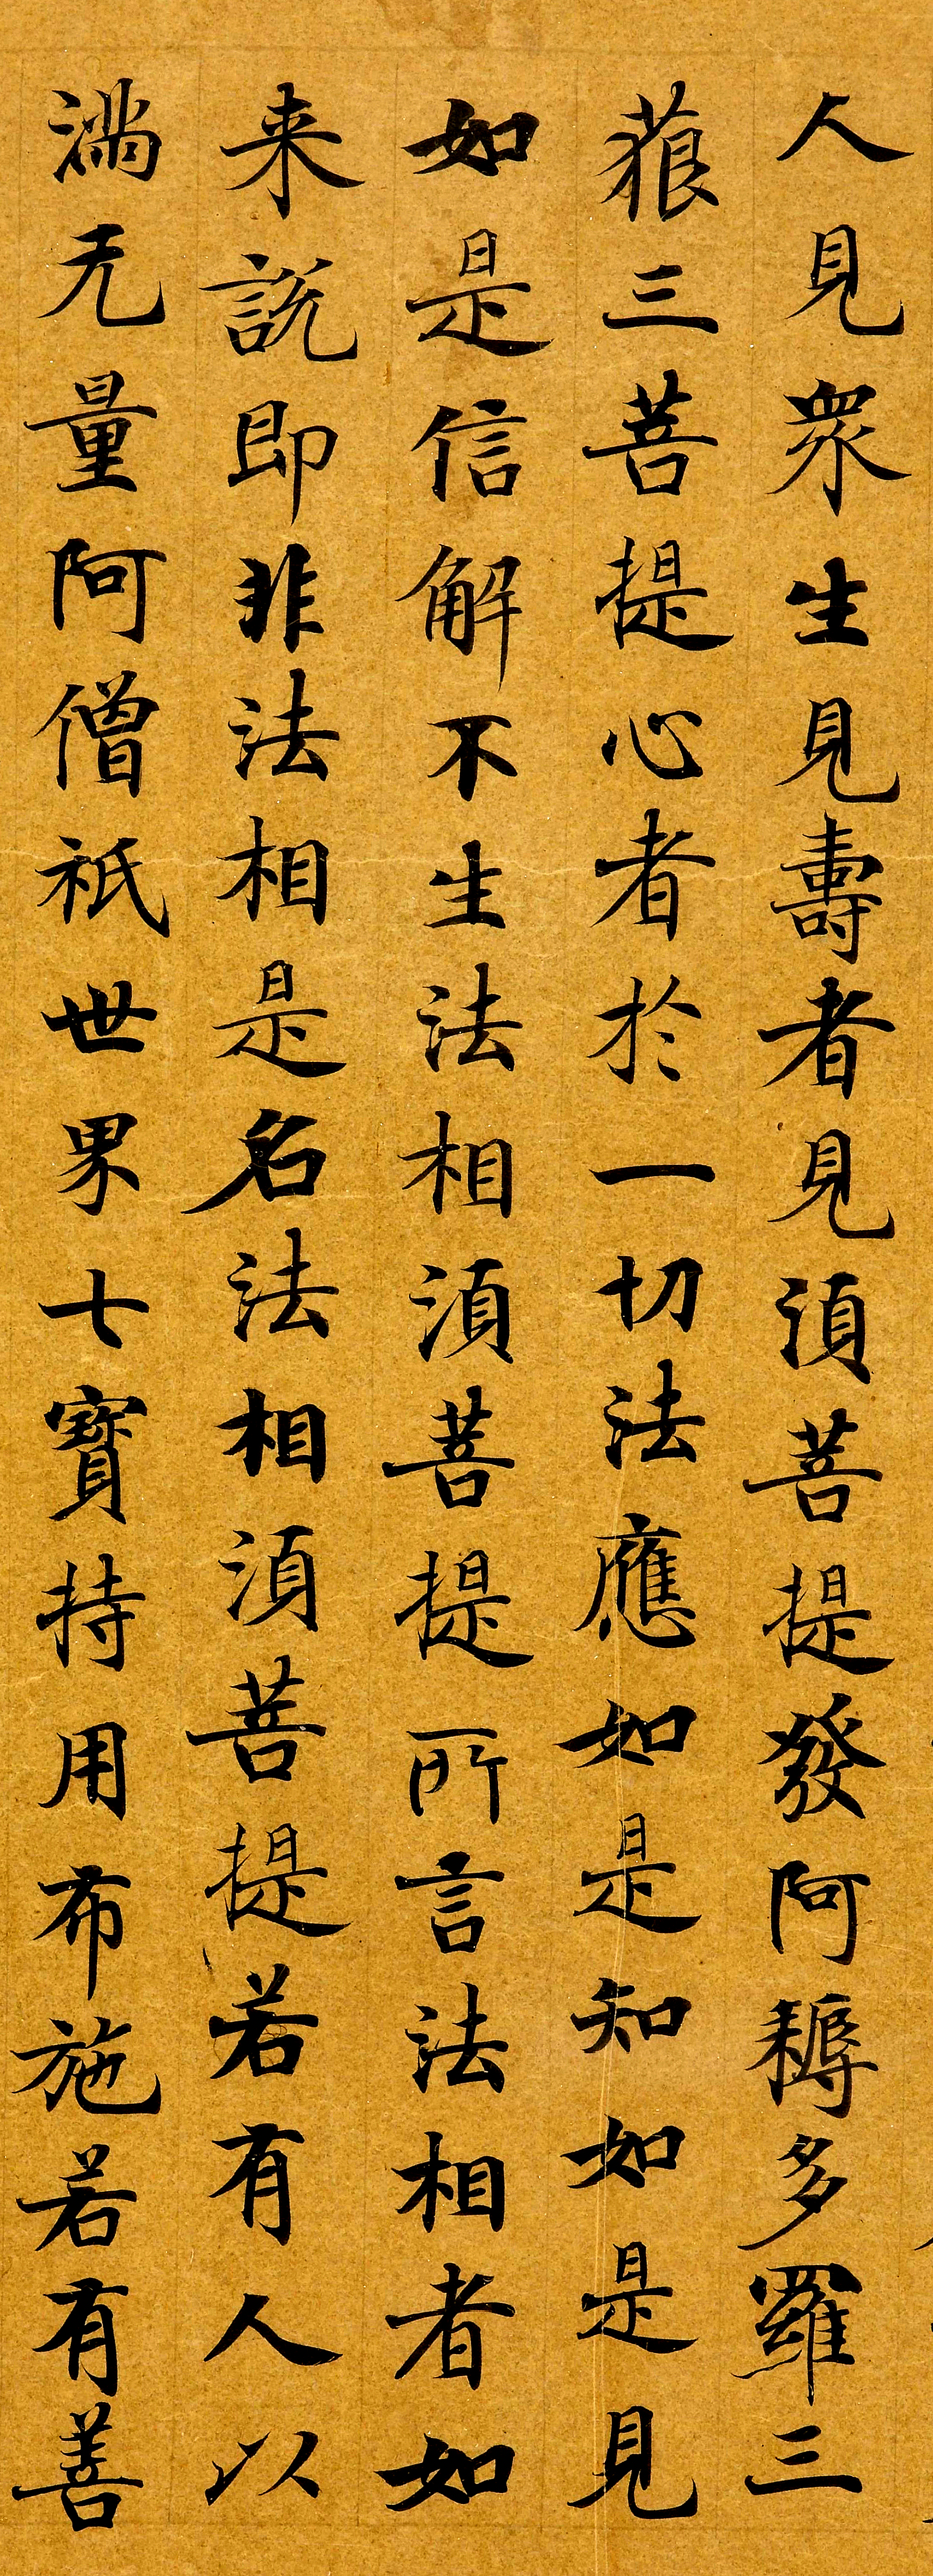 人見衆生見壽者見湏菩提發阿耨多羅三
藐三菩提心者於一切法應如是知如是見
如是信解不生法相湏菩提所言法相者如
来說即非法相是名法相湏菩提若有人以
滿无量阿僧祇世界七寶持用布施若有善